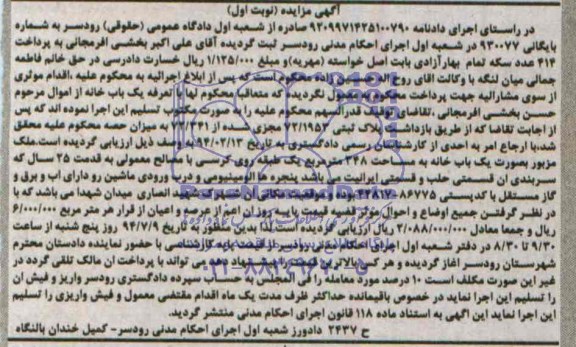 آگهی مزایده (نوبت اول)
در راستای اجرای دادنامه ۹۳۰۹۹۷۱۴۳۵۱۰۰۷۹۰ صادره از شعبه اول دادگاه عمومی (حقوقی) رودسر به شماره
بایگانی ۹۳۰۰۷۷ در شعبه اول اجرای احکام مدنی رودسر ثبت گردیده آقای علی اکبر بخشی افرمجانی به پرداخت
۴۱۴ عدد سکه تمام بهارآزادی بابت اصل خواسته (مهریه)و مبلغ ۱/۱۳۵/۰۰۰ ریال خسارت دادرسی در حق خانم فاطمه
جمالی میان لنگه با وکالت اقای روح زاده محکوم است که پس از ابلاغ اجرائیه به محکوم علیه ،اقدام موثری
از سوی مشارالیه جهت پرداخت محکوم به معمول نگردیده که متعاقبا محکوم لها با تعرفه یک باب خانه از اموال مرحوم
حسن بخشی افرمجانی ،تقاضای توقیف قدرالسهم محکوم علیه را به صورت مکتوب تسلیم این اجرا نموده اند که پس
از اجابت تقاضا که از طریق بازداشت پلاک ثبتی ۷۲/۱۹۵۳ مجزی شده از ۷۲/۳۴۱ به میزان حصه محکوم علیه محقق
شد،با ارجاع امر به احدی از کارشناسان رسمی دادگستری به تاریخ ۹۴/۰۲/۱۳ به وصف ذیل ارزیابی گردیده است.ملک
مزبور بصورت یک باب خانه به مساحت ۳۴۸ مترمربع یک طبقه روی کرسی با مصالح معمولی به قدمت ۲۵ سال که
سربندی ان قسمتی حلب و قسمتی ایرانیت می باشد پنجره ها الومینیومی و درب ورودی ماشین رو دارای اب و برق و
گاز مستقل با کدپستی ۴۴۸۱۷۰۸۶۷۷۵ بوده و موقعیت مکانی ان شهرک شهید انصاری میدان شهدا می باشد که با
در نظر گرفتن جمیع اوضاع و احوال موثر قضیه قیمت پایه روز ان اعم از عرصه و اعیان از قرار هر متر مربع ۶/۰۰۰/۰۰۰
ریال و جمعا معادل ۲/۰۸۸/۰۰۰/۰۰۰ ریال ارزیابی گردیده است.لذا بدین منظور به تاریخ ۹۴/۷/۹ روز پنج شنبه از ساعت
۹/۳۰ تا ۸/۳۰ در دفتر شعبه اول اجرای احکام مدنی رودسر از قیمت پایه کارشناسی با حضور نماینده دادستان محترم
شهرستان رودسر اغاز گردیده و هر کس بالاترین قیمت را پیشنهاد دهد می تواند با پرداخت ان مالک تلقی گردد در
غیر این صورت مکلف است ۱۰ درصد مورد معامله را فی المجلس به حساب سپرده دادگستری رودسر واریز و فیش ان
را تسلیم این اجرا نماید در خصوص باقیمانده حداکثر ظرف مدت یک ماه اقدام مقتضی معمول و فیش واریزی را تسلیم
این اجرا نماید این اگهی به استناد ماده ۱۱۸ قانون اجرای احکام مدنی منتشر گردید.
ح ۲۴۳۷ دادورز شعبه اول اجرای احکام مدنی رودسر- کمیل خندان بالنگاه
۰۲۱-۸۸۳۴۹۶۷۰-۵